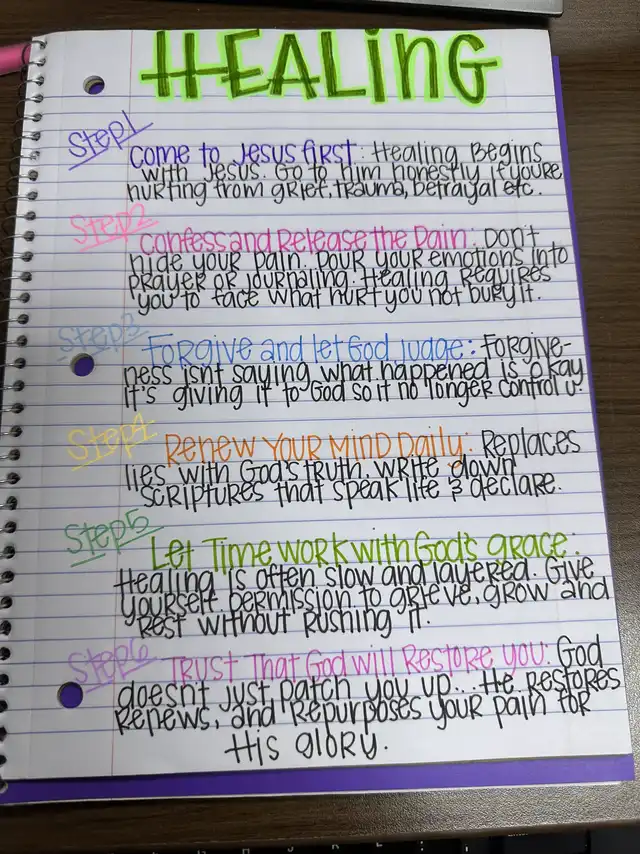 HEALiNG
Step 1
Come to Jesus first: Healing Begins
with Jesus. Go to Him honestly if youre
hurting from grief, trauma, betrayal etc.
Step 2
Confess and Release the Pain: Don't
hide your pain. Pour your emotions into
prayer or journaling. Healing Requires
you to face what hurt you not bury it.
Step 3
Forgive and let God judge: Forgive-
ness isnt saying what happened is okay
it's giving it to God so it no longer control u.
Step 4
Renew Your Mind Daily: Replaces
lies with God's truth. Write down
scriptures that speak life & declare.
Step 5
Let Time work with God's grace:
Healing is often slow and layered. Give
yourself permission to grieve, grow and
rest without rushing it.
Step 6
Trust That God will Restore you: God
doesn't just patch you up... He restores
Renews, and Repurposes your pain for
His glory.